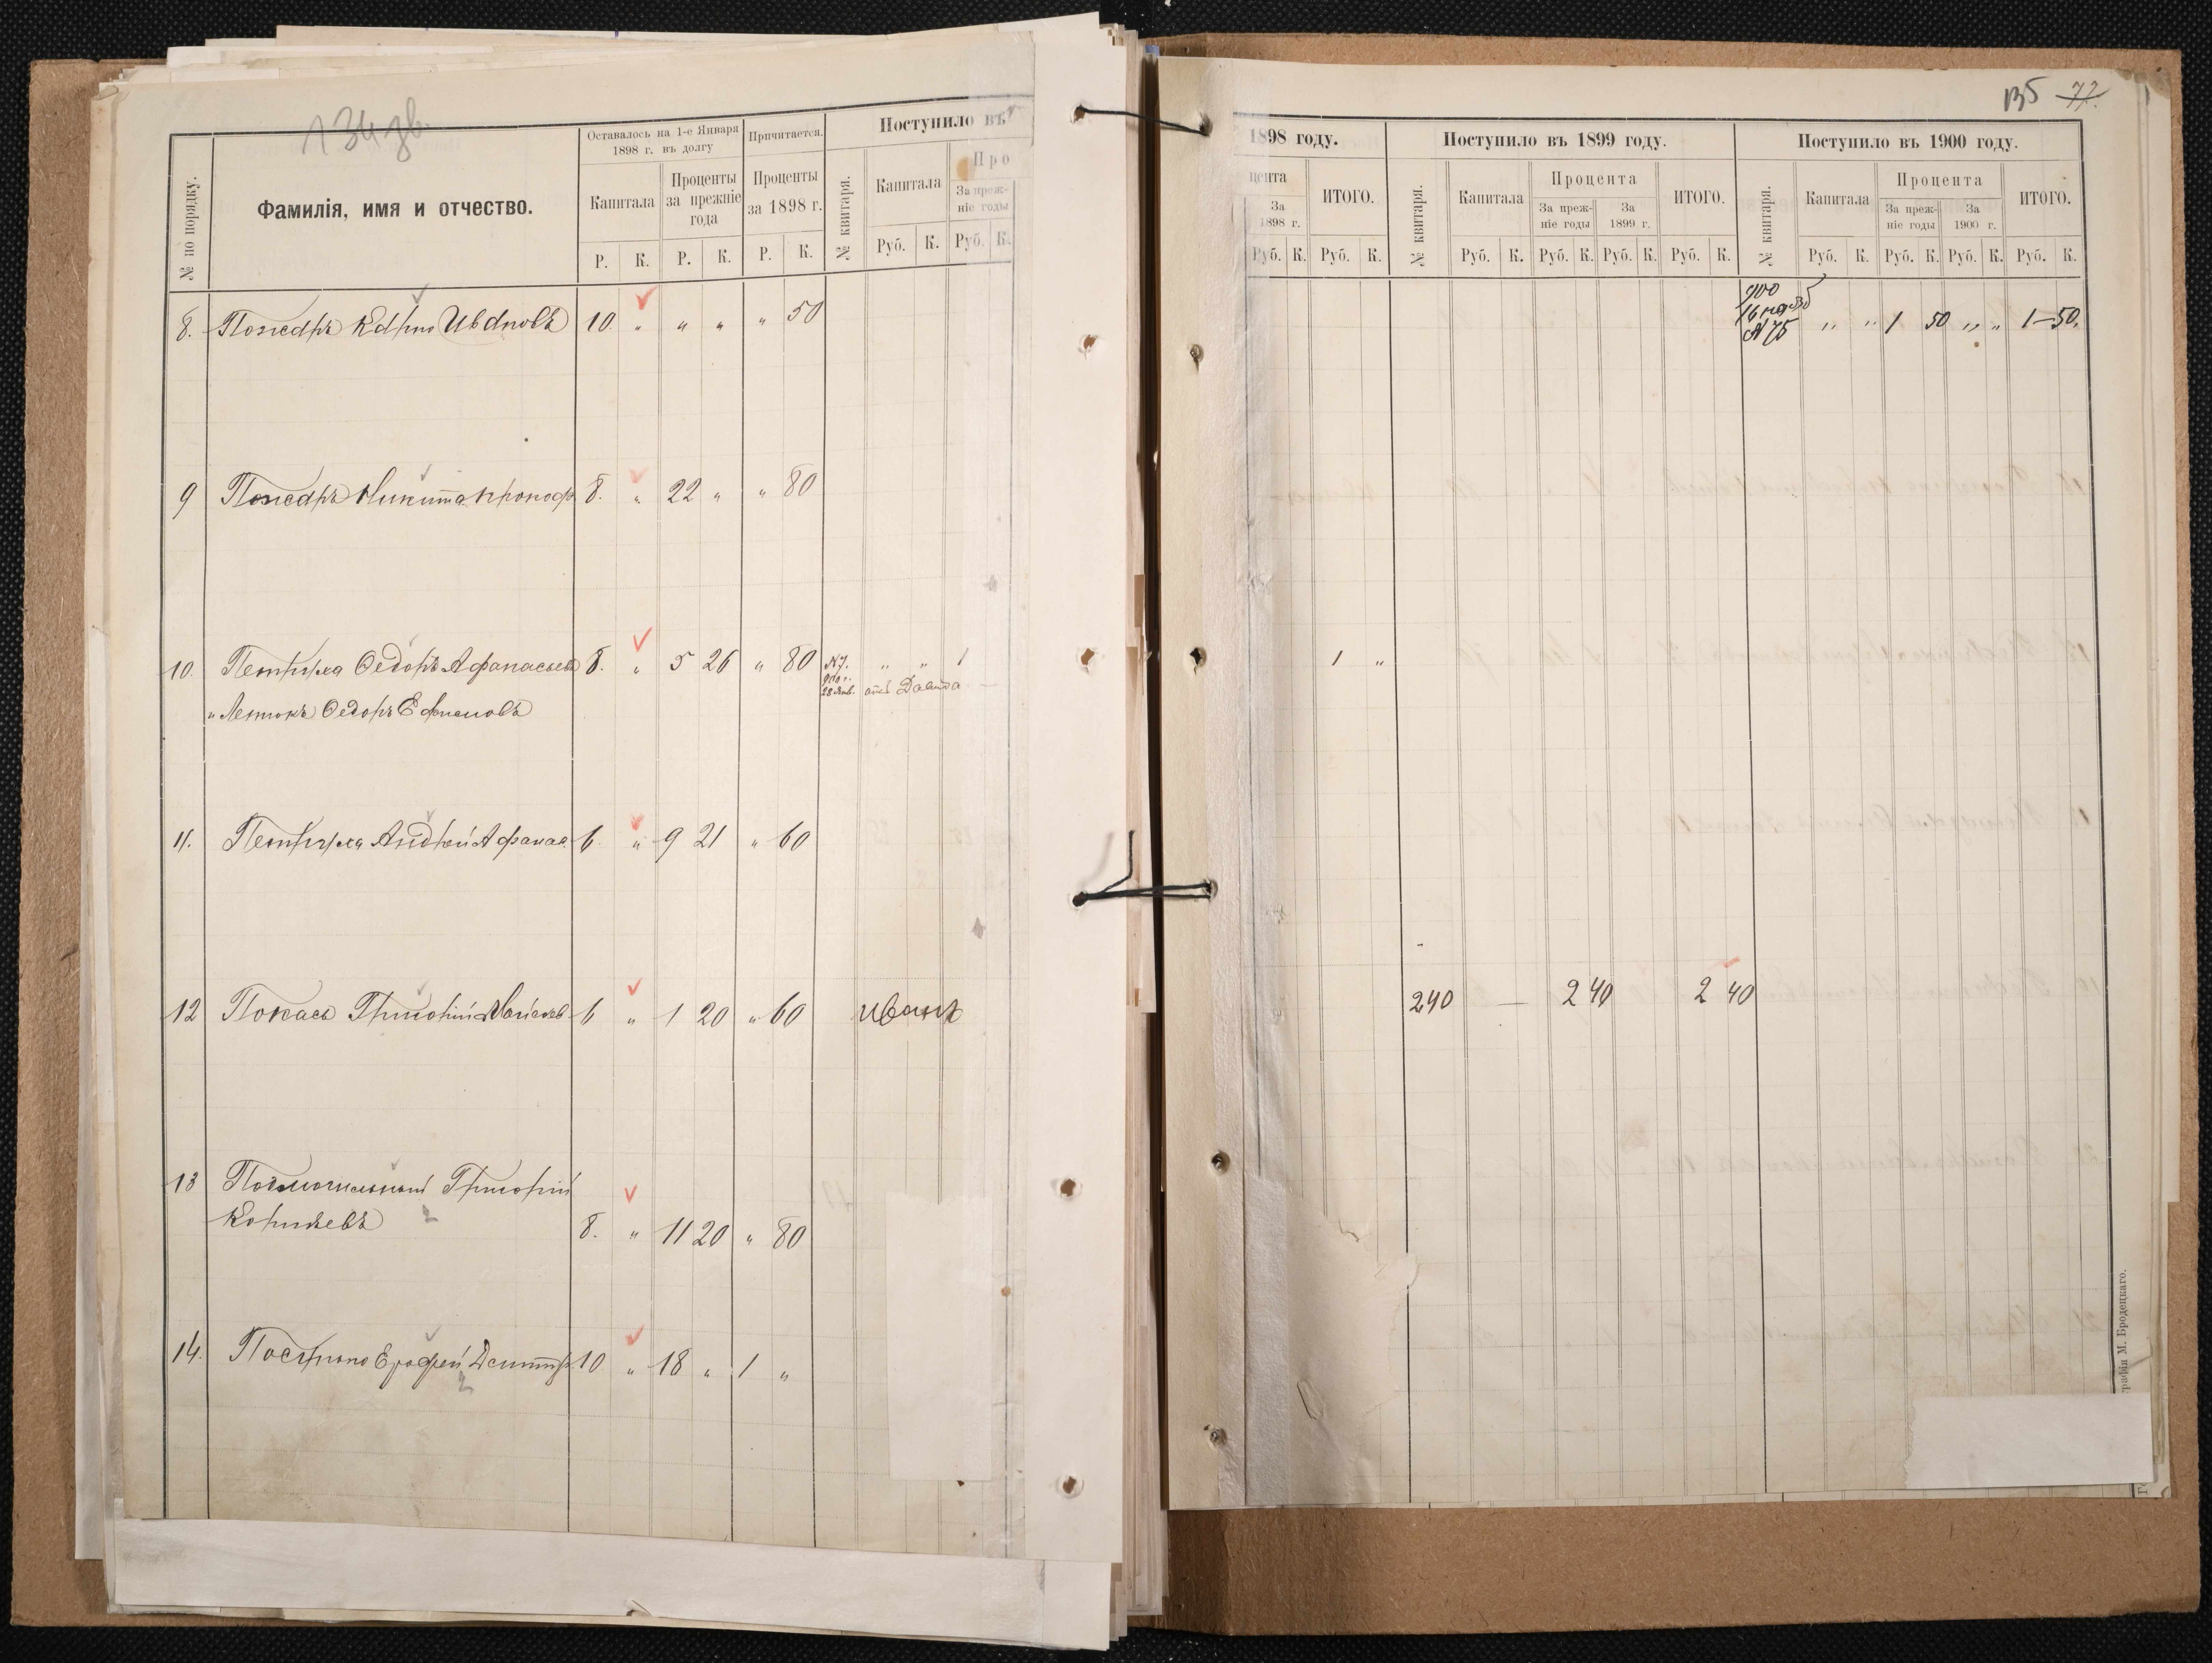 134 зв.
135 77.
№ по порядку.
Фамилія, имя и отчество.
Оставалось на 1-е Января 1898 г. въ долгу
Капитала
Проценты за прежніе года
Причитается.
Проценты за 1898 г.
Поступило въ
№ квитаря.
Капитала
Про
За преж-
ніе годы
Р. К. Р. К. Р. К. Руб. К. Руб. К.
1898 году.
цента
За 1898 г.
ИТОГО.
Поступило въ 1899 году.
№ квитаря.
Капитала
Процента
За преж-
ніе годы
За 1899 г.
ИТОГО.
Поступило въ 1900 году.
№ квитаря.
Капитала
Процента
За преж-
ніе годы
За 1900 г.
ИТОГО.
Руб. К. Руб. К. Руб. К. Руб. К. Руб. К. Руб. К. Руб. К. Руб. К. Руб. К. Руб. К.
8. Пожаръ Карпо Ивановъ 10 „ „ „ „ 50
900
N 75 „ „ 1 50 „ „ 1–50.
9 Пожаръ Никита Прокоф. 8. „ 22 „ „ 80
10. Петруха Ѳедоръ Афанасьевъ 8. „ 5 26 „ 80 N 7. „ „ 1
28 Янв. отъ Давида
1 „
„ Ѳедоръ Ефимовъ
11. Петруха Андрей Афанас. 6 „ 9 21 „ 60
12 Покась Григорій 6 „ 1 20 „ 60 Иванъ
240 — 2 40 2 40
13 Григорій
Корнѣевъ 8. „ 11 20 „ 80
14. Ерофей Дмитр. 10 „ 18 „ 1 „
графія М. Бродецкаго.